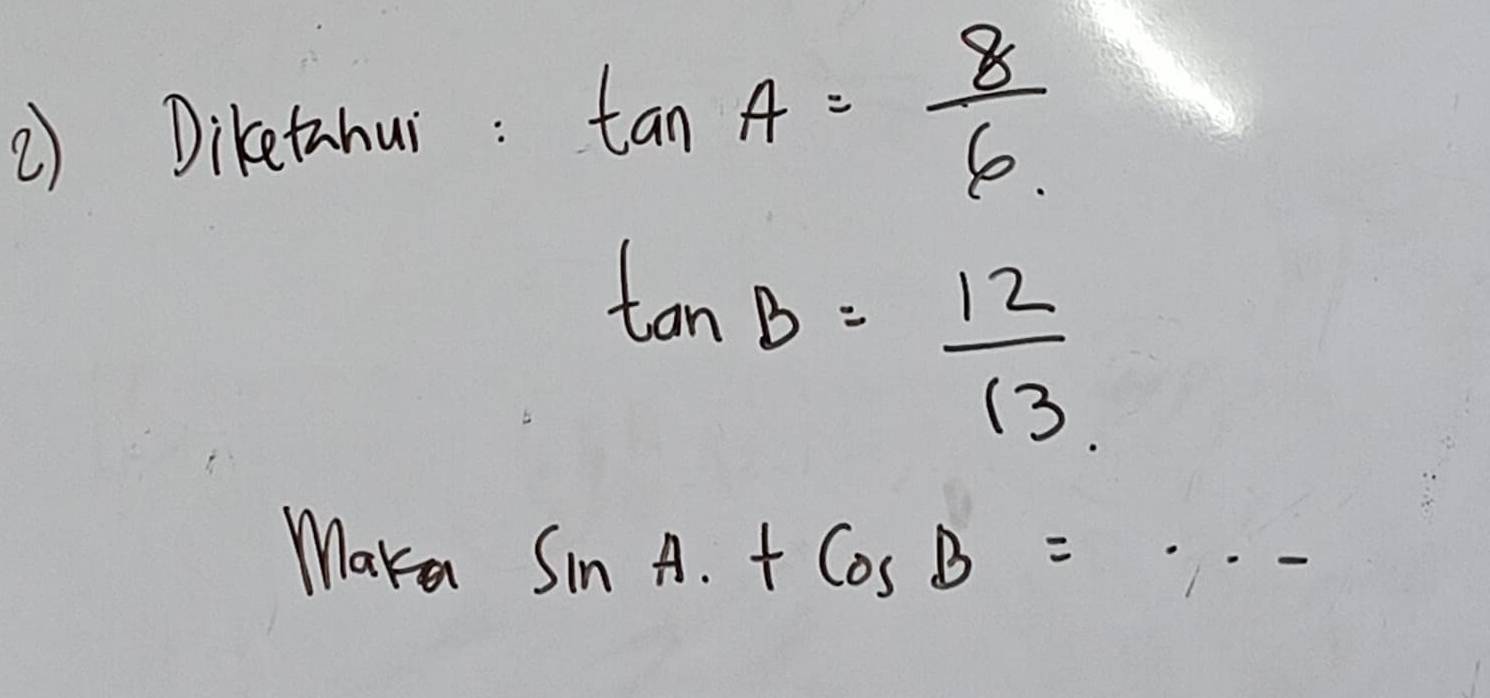 2) Diketahui : tan A = 8/6.
tan B = 12/13.
Maka Sin A. + Cos B = ...-